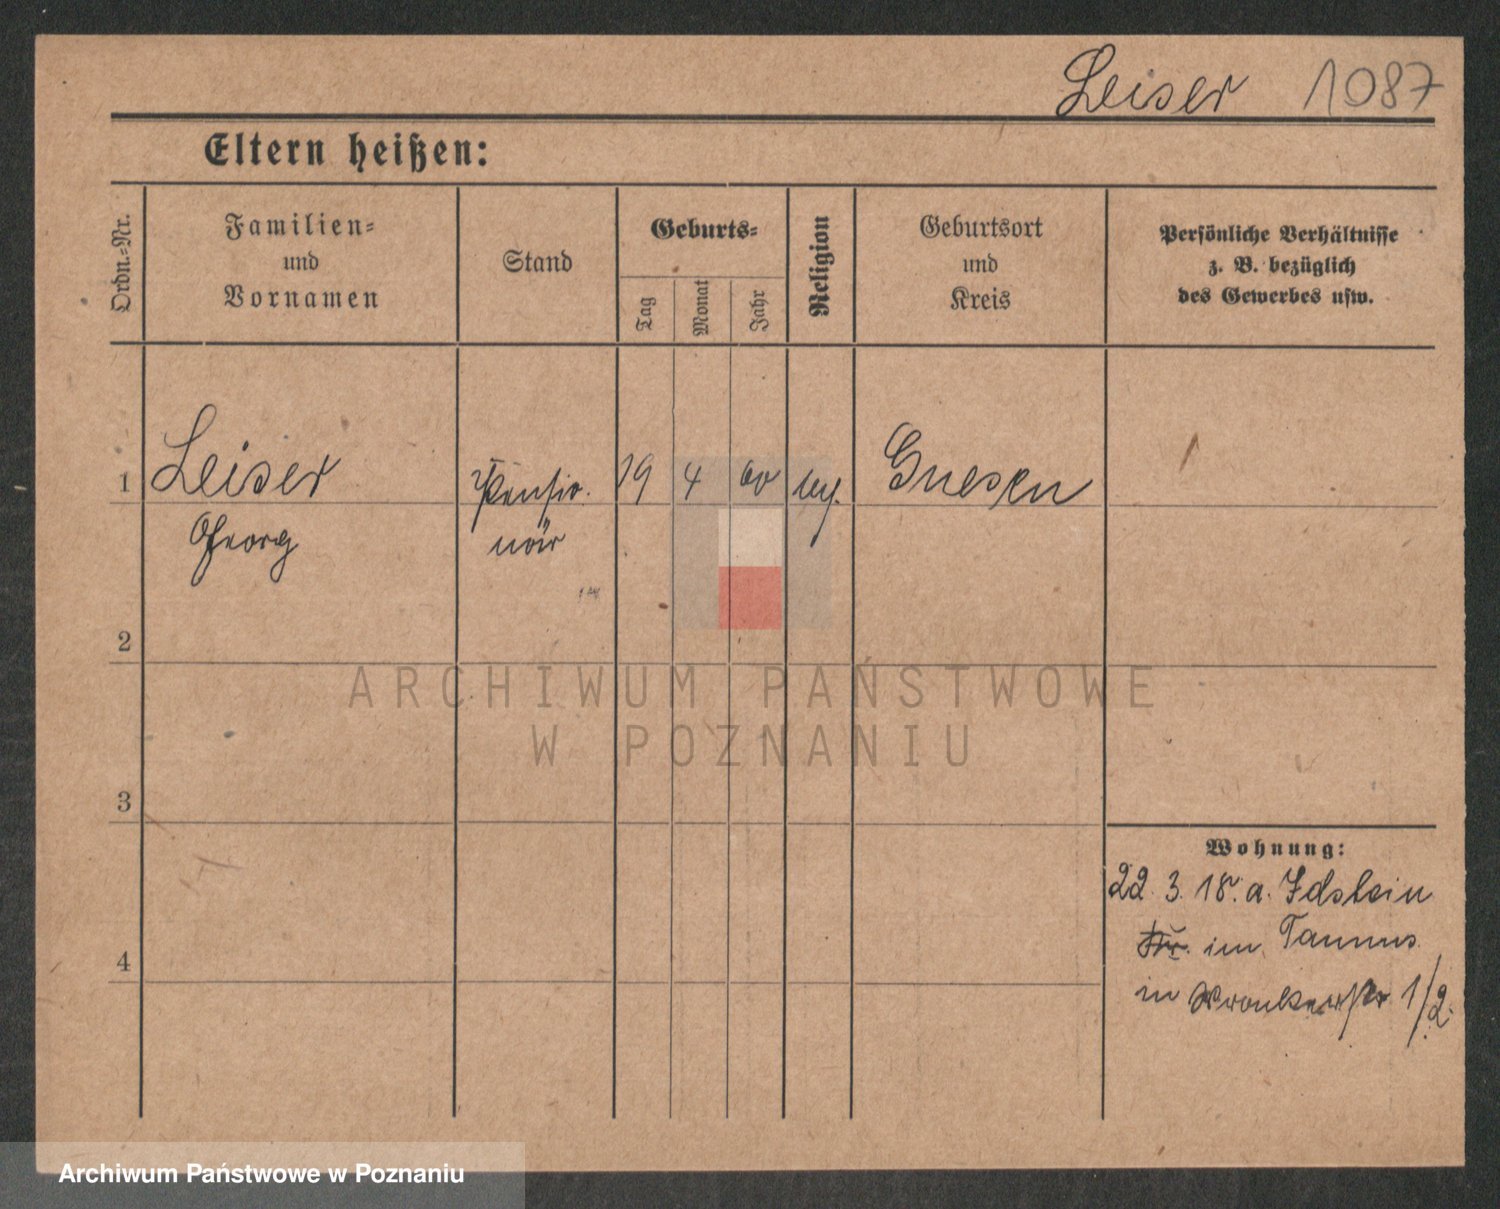 Leiser 1087
Eltern heißen:
Ordn.-Nr.
Familien-
und
Vornamen
Stand
Geburts-
Tag
Monat
Jahr
Religion
Geburtsort
und
Kreis
Persönliche Verhältnisse
z. B. bezüglich
des Gewerbes usw.
1 Leiser Pensio- 19 4 60 ev. Gnesen
Georg när
2
3
4
Wohnung:
22. 3. 18. a. Idstein
im Taunus
in Wronkerstr 1/2.
ARCHIWUM PAŃSTWOWE
W POZNANIU
Archiwum Państwowe w Poznaniu